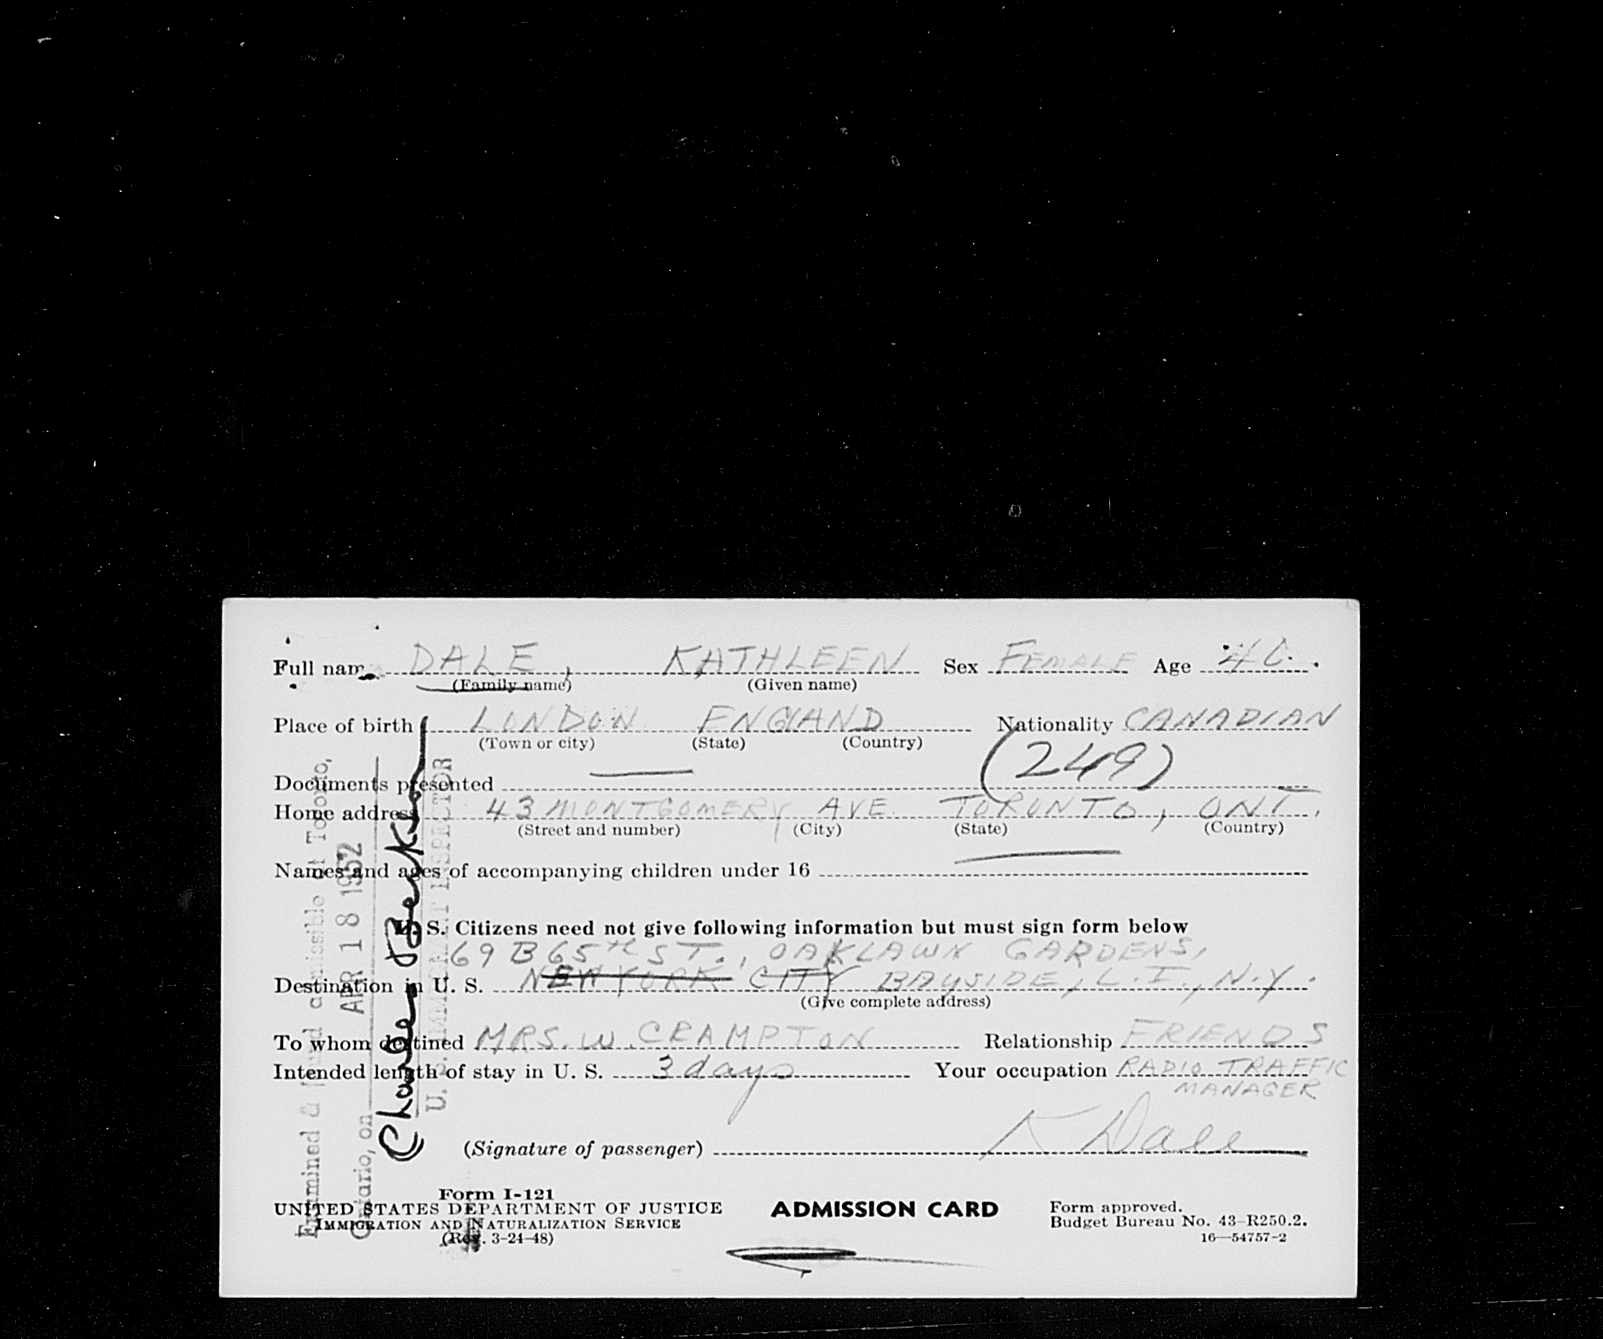 Full name DALE, KATHLEEN Sex FEMALE Age 40.
(Family name) (Given name)
Place of birth LONDON ENGLAND Nationality CANADIAN
(Town or city) (State) (Country)
(249)
Documents presented
Home address 43 MONTGOMERY AVE TORONTO, ONT.
(Street and number) (City) (State) (Country)
Names and ages of accompanying children under 16
U. S. Citizens need not give following information but must sign form below
69 B 65TH ST., OAKLAWN GARDENS,
Destination in U. S. NEW YORK CITY BAYSIDE, L.I., N.Y.
(Give complete address)
To whom destined MRS. W. CRAMPTON Relationship FRIENDS
Intended length of stay in U. S. 3 days Your occupation RADIO TRAFFIC
MANAGER
(Signature of passenger) K Dale
Form I-121
UNITED STATES DEPARTMENT OF JUSTICE
IMMIGRATION AND NATURALIZATION SERVICE
(Rev. 3-24-48)
ADMISSION CARD
Form approved.
Budget Bureau No. 43-R250.2.
16—54757-2
Examined & found admissible at Toronto,
Ontario, on APR 18 1952
Charles
U. S. IMMIGRANT INSPECTOR